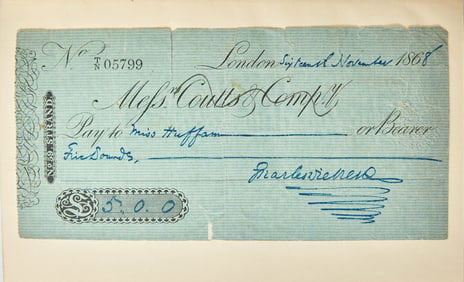 No T/N 05799 London Sixteenth November 1868
Messrs Coutts & Compy
Pay to Miss Huffam or Bearer
Five Pounds,
Charles Dickens
£ 5.0.0
No 59, STRAND.